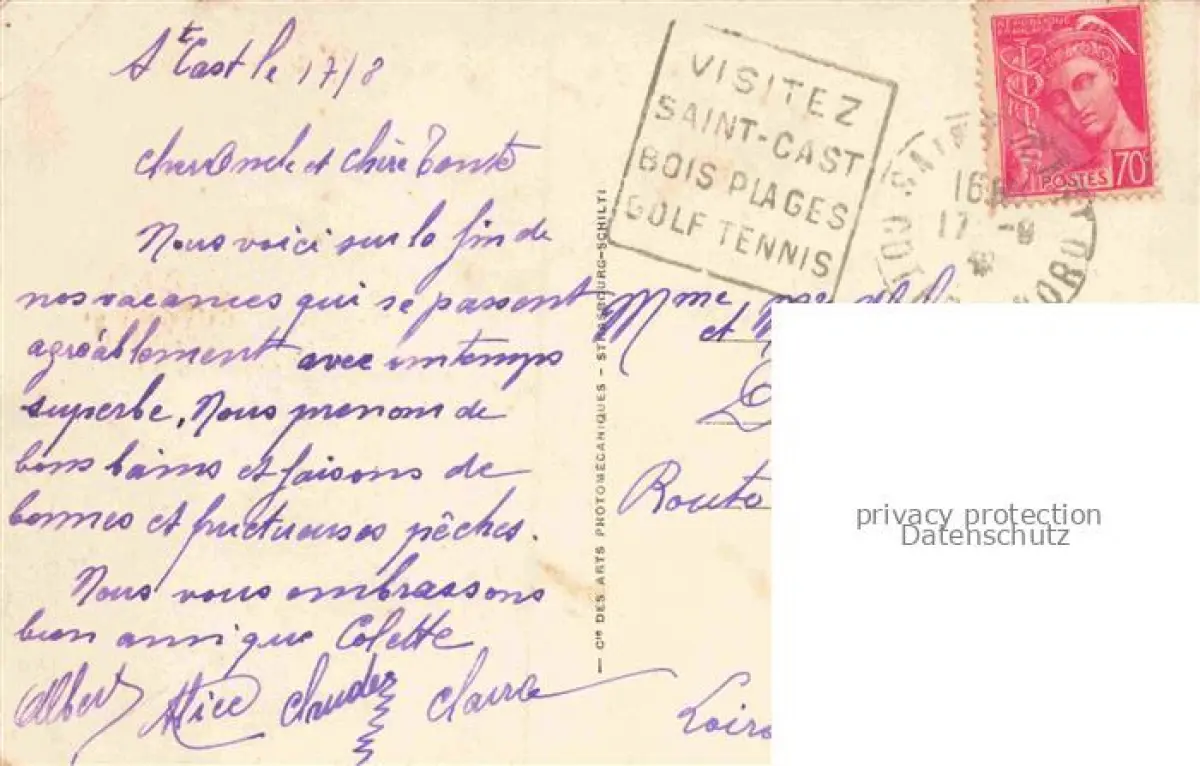 St Cast le 17/8
Cher Oncle et Chère Tante
Nous voici sur la fin de
nos vacances qui se passent
agréablement avec un temps
superbe. Nous prenons de
bons bains et faisons de
bonnes et fructueuses pêches.
Nous vous embrassons
bien ainsi que Colette
Albert Alice Claude Claire
— Cie DES ARTS PHOTOMÉCANIQUES - STRASBOURG-SCHILTI
VISITEZ
SAINT-CAST
BOIS PLAGES
GOLF TENNIS
RÉPUBLIQUE
FRANÇAISE
POSTES 70c
16H
17 -8
NORD
Mme
et
Route
privacy protection
Datenschutz